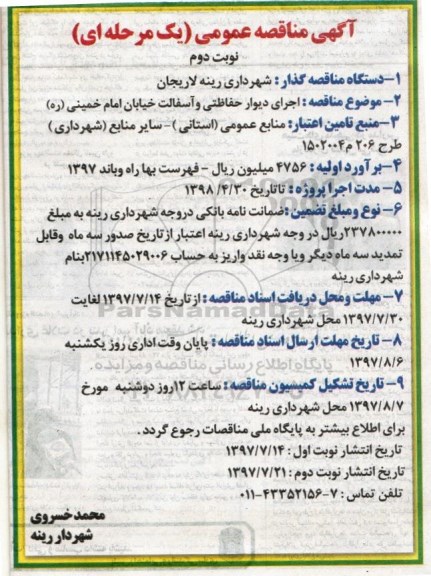 آگهی مناقصه عمومی (یک مرحله ای)
نوبت دوم
۱–دستگاه مناقصه گذار : شهرداری رینه لاریجان
۲– موضوع مناقصه : اجرای دیوار حفاظتی وآسفالت خیابان امام خمینی (ره)
۳–منبع تامین اعتبار: منابع عمومی (استانی ) – سایر منابع (شهرداری)
طرح ۲۰۶ م۱۵۰۲۰۰۴
۴–برآورد اولیه : ۴۷۵۶ میلیون ریال – فهرست بها راه وباند ۱۳۹۷
۵– مدت اجرا پروژه : تاتاریخ ۱۳۹۸/۴/۳۰
۶– نوع ومبلغ تضمین :ضمانت نامه بانکی دروجه شهرداری رینه به مبلغ
۲۳۷۸۰۰۰۰۰ریال در وجه شهرداری رینه اعتبار از تاریخ صدور سه ماه وقابل
تمدید سه ماه دیگر ویا وجه نقد واریز به حساب ۲۱۷۱۱۴۵۰۲۹۰۰۶بنام
شهرداری رینه
۷– مهلت ومحل دریافت اسناد مناقصه : از تاریخ ۱۳۹۷/۷/۱۴ لغایت
۱۳۹۷/۷/۳۰ محل شهرداری رینه
۸– تاریخ مهلت ارسال اسناد مناقصه : پایان وقت اداری روز یکشنبه
۱۳۹۷/۸/۶
۹– تاریخ تشکیل کمیسیون مناقصه : ساعت ۱۲روز دوشنبه مورخ
۱۳۹۷/۸/۷ محل شهرداری رینه
برای اطلاع بیشتر به پایگاه ملی مناقصات رجوع گردد .
تاریخ انتشار نوبت اول : ۱۳۹۷/۷/۱۴
تاریخ انتشار نوبت دوم : ۱۳۹۷/۷/۲۱
تلفن تماس : ۷–۴۳۳۵۲۱۵۶–۰۱۱
محمد خسروی
شهردار رینه
ParsNamadData
پایگاه اطلاع رسانی مناقصه و مزایده